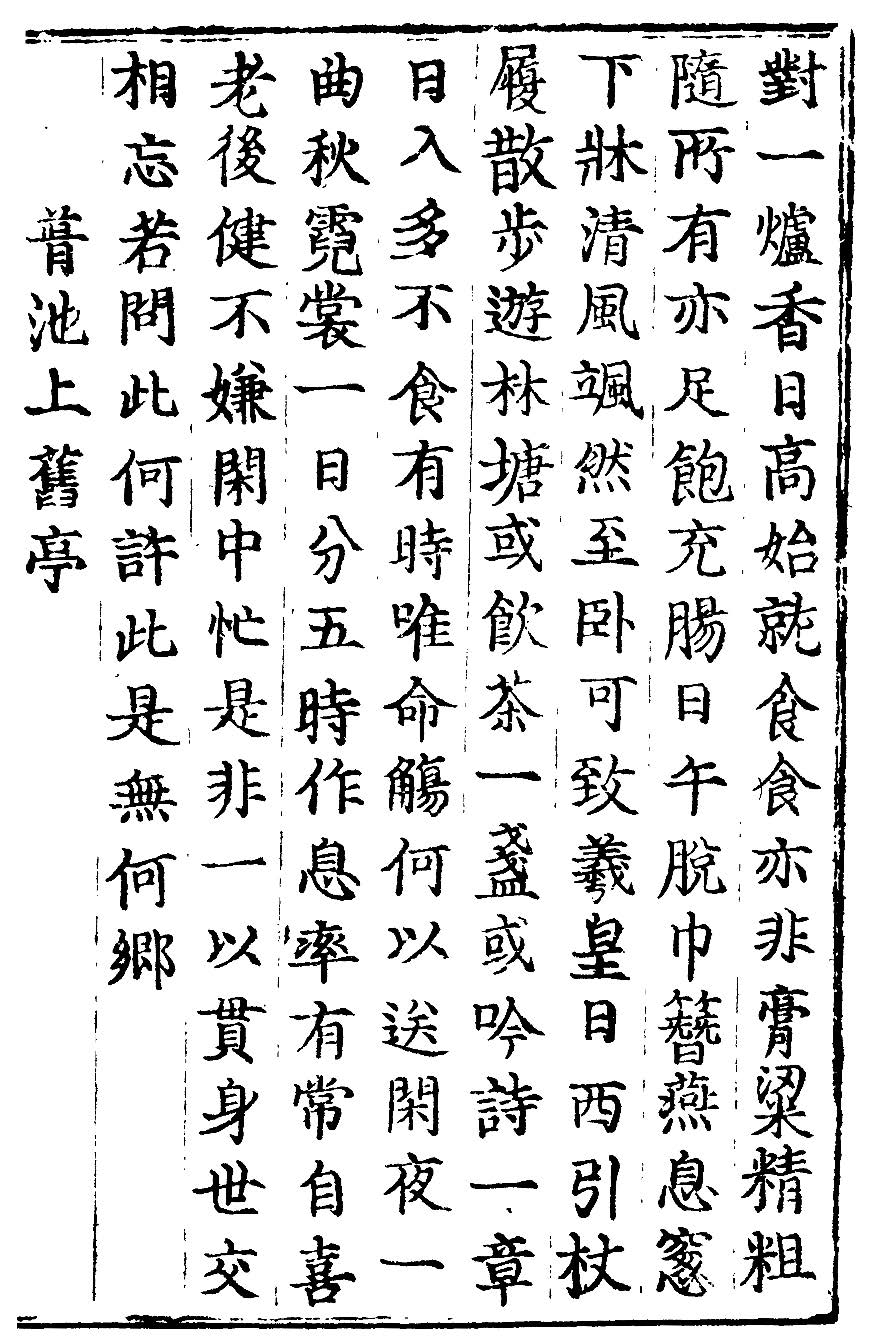 對一爐香日高始就食食亦非膏粱精粗
隨所有亦足飽充腸日午脫巾簪燕息窓
下牀清風颯然至卧可致羲皇日西引杖
屨散步遊林塘或飲茶一盞或吟詩一章
日入多不食有時唯命觴何以送閑夜一
曲秋霓裳一日分五時作息率有常自喜
老後健不嫌閑中忙是非一以貫身世交
相忘若問此何許此是無何鄉
葺池上舊亭